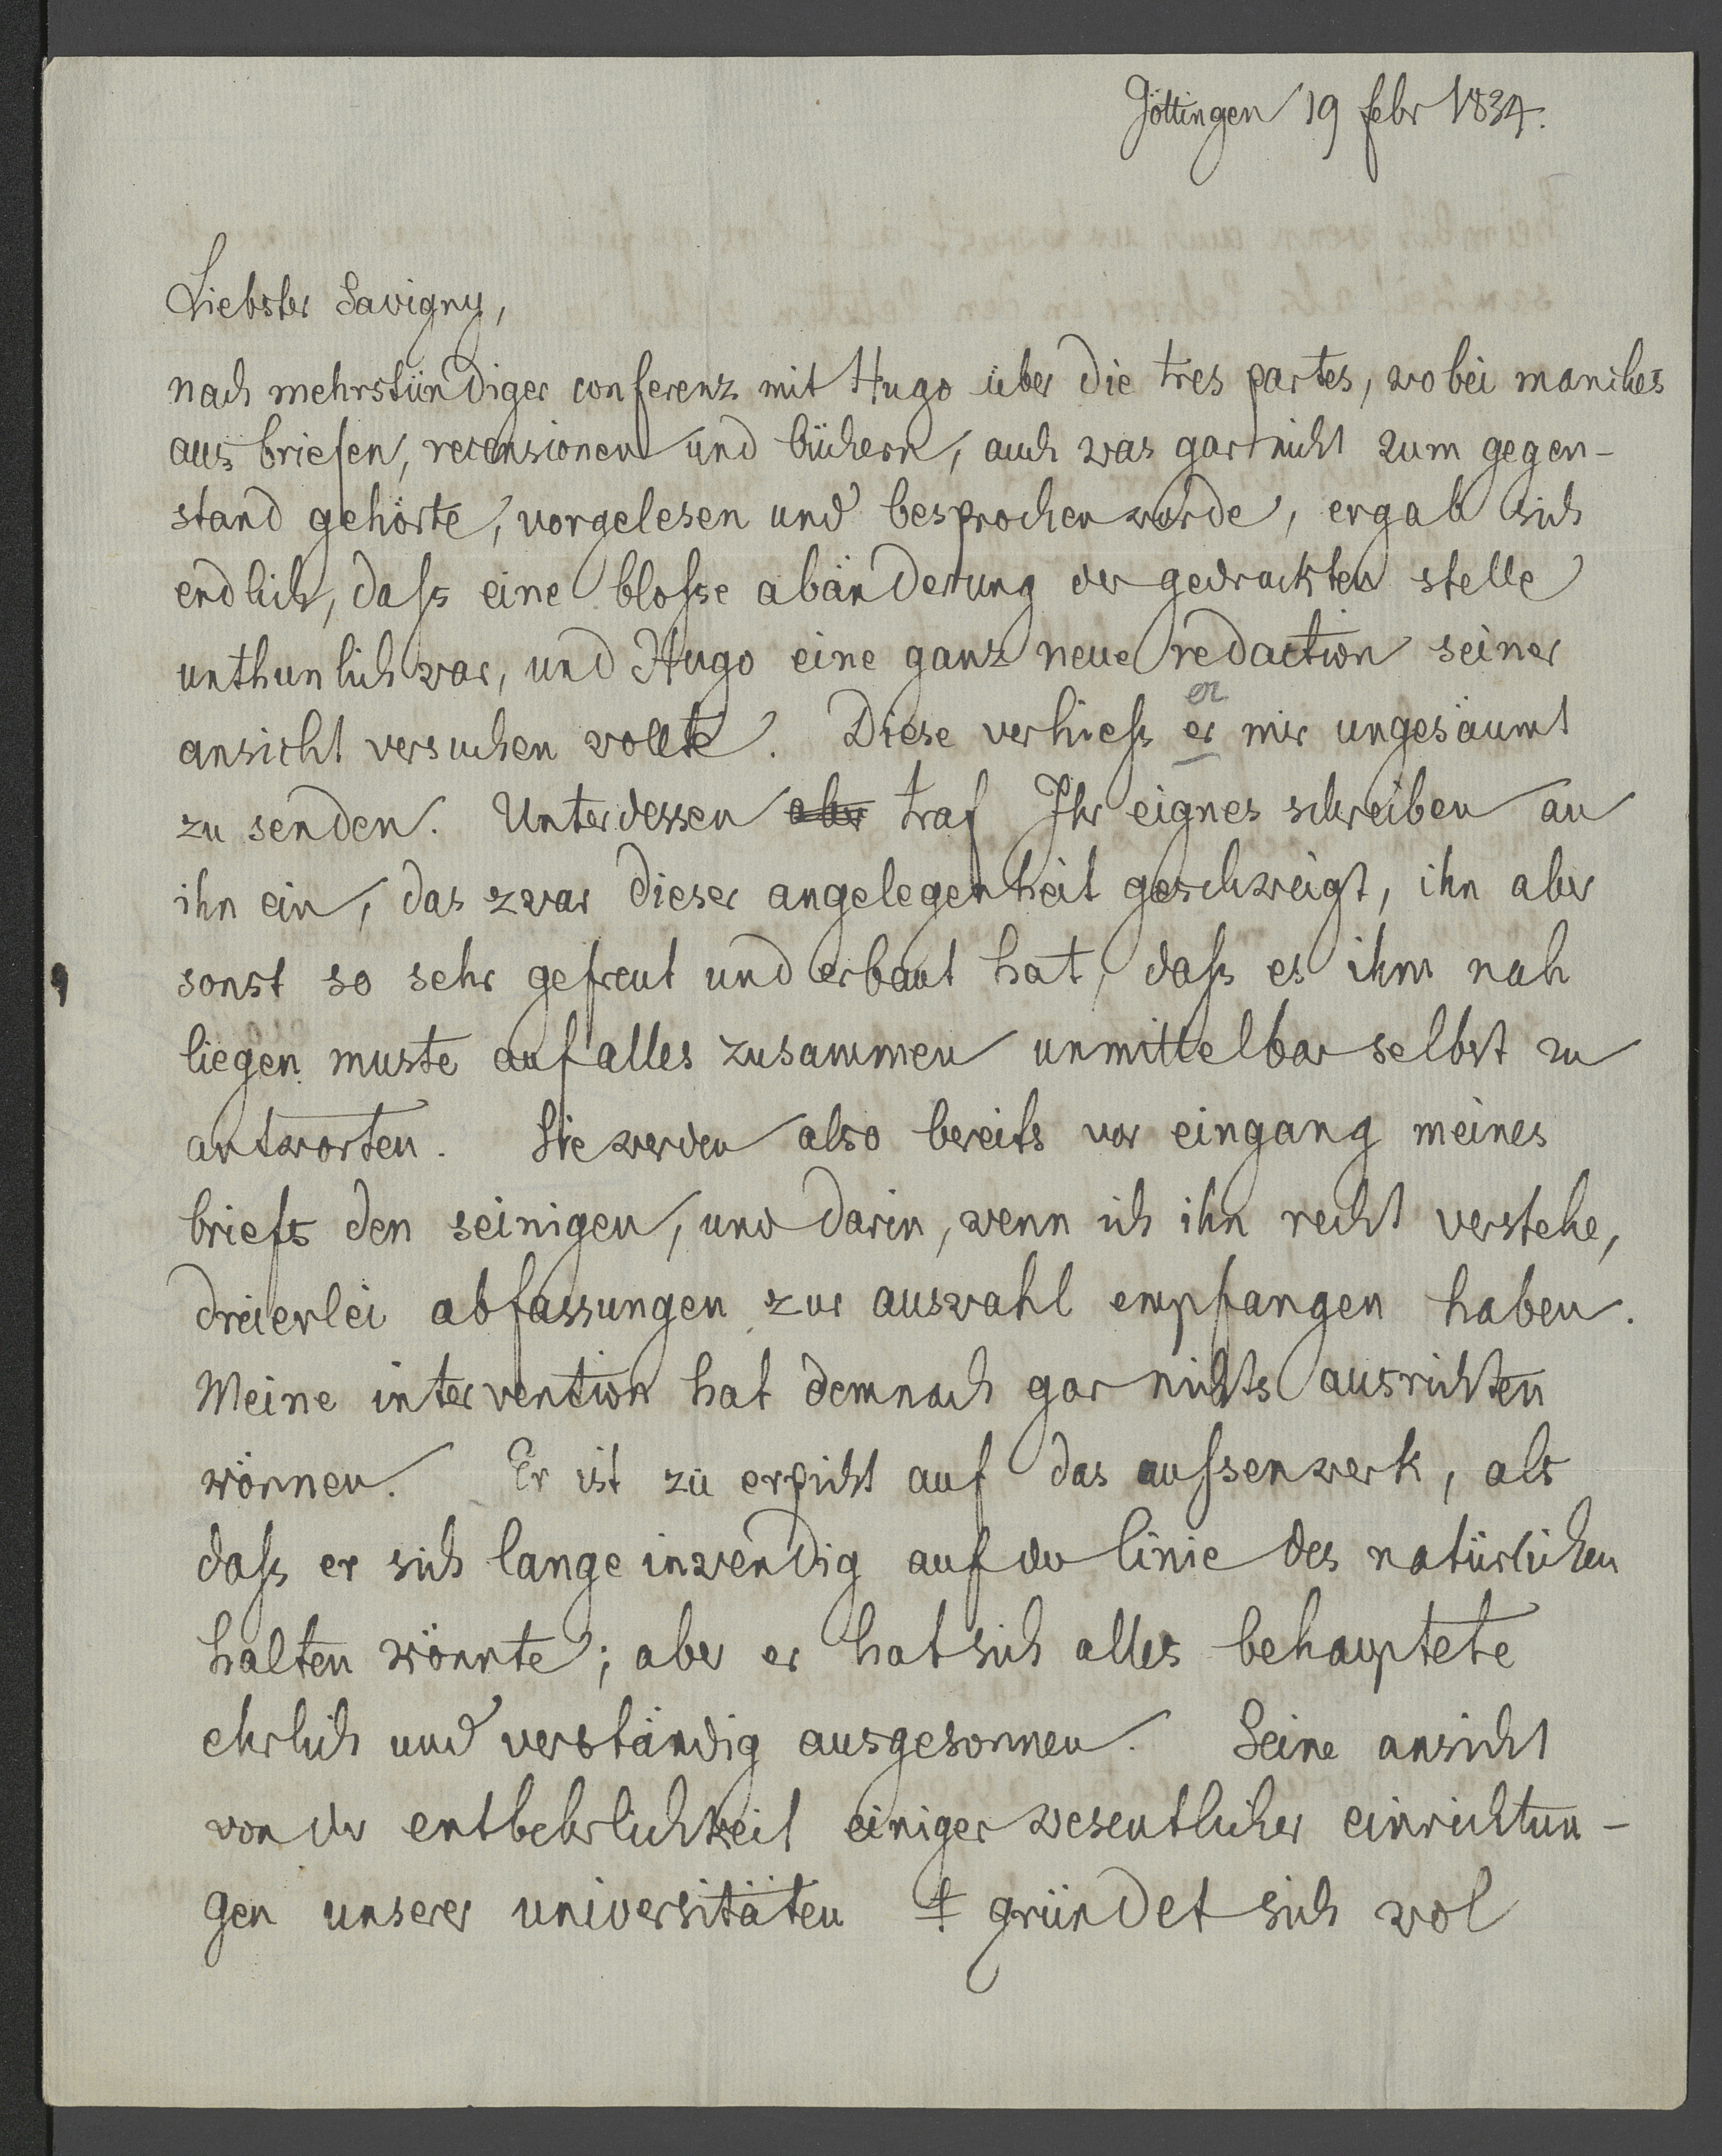 Göttingen 19 febr 1834.
Liebster Savigny,
nach mehrstündiger conferenz mit Hugo über die tres partes, wobei manches
aus briefen, recensionen und büchern, auch was gar nicht zum gegen-
stand gehörte, vorgelesen und besprochen wurde, ergab sich
endlich, daſs eine bloſse abänderung der gedruckten stelle
unthunlich war, und Hugo eine ganz neue redaction seiner
ansicht versuchen wollte. Diese verhieſs er mir ungesäumt
er
zu senden. Unterdessen aber traf Ihr eignes schreiben an
ihn ein, das zwar dieser angelegenheit geschweigt, ihn aber
sonst so sehr gefreut und erbaut hat, daſs es ihm nah
liegen muste auf alles zusammen unmittelbar selbst zu
antworten. Sie werden also bereits vor eingang meines
briefs den seinigen, und darin, wenn ich ihn recht verstehe,
dreierlei abfassungen zur auswahl empfangen haben.
Meine intervention hat demnach gar nichts ausrichten
können. Er ist zu erpicht auf das auſsenwerk, als
daſs er sich lange inwendig auf der linie des natürlichen
halten könnte; aber er hat sich alles behauptete
ehrlich und verständig ausgesonnen. Seine ansicht
von der entbehrlichkeit einiger wesentlicher einrichtun-
gen unserer universitäten gründet sich wol